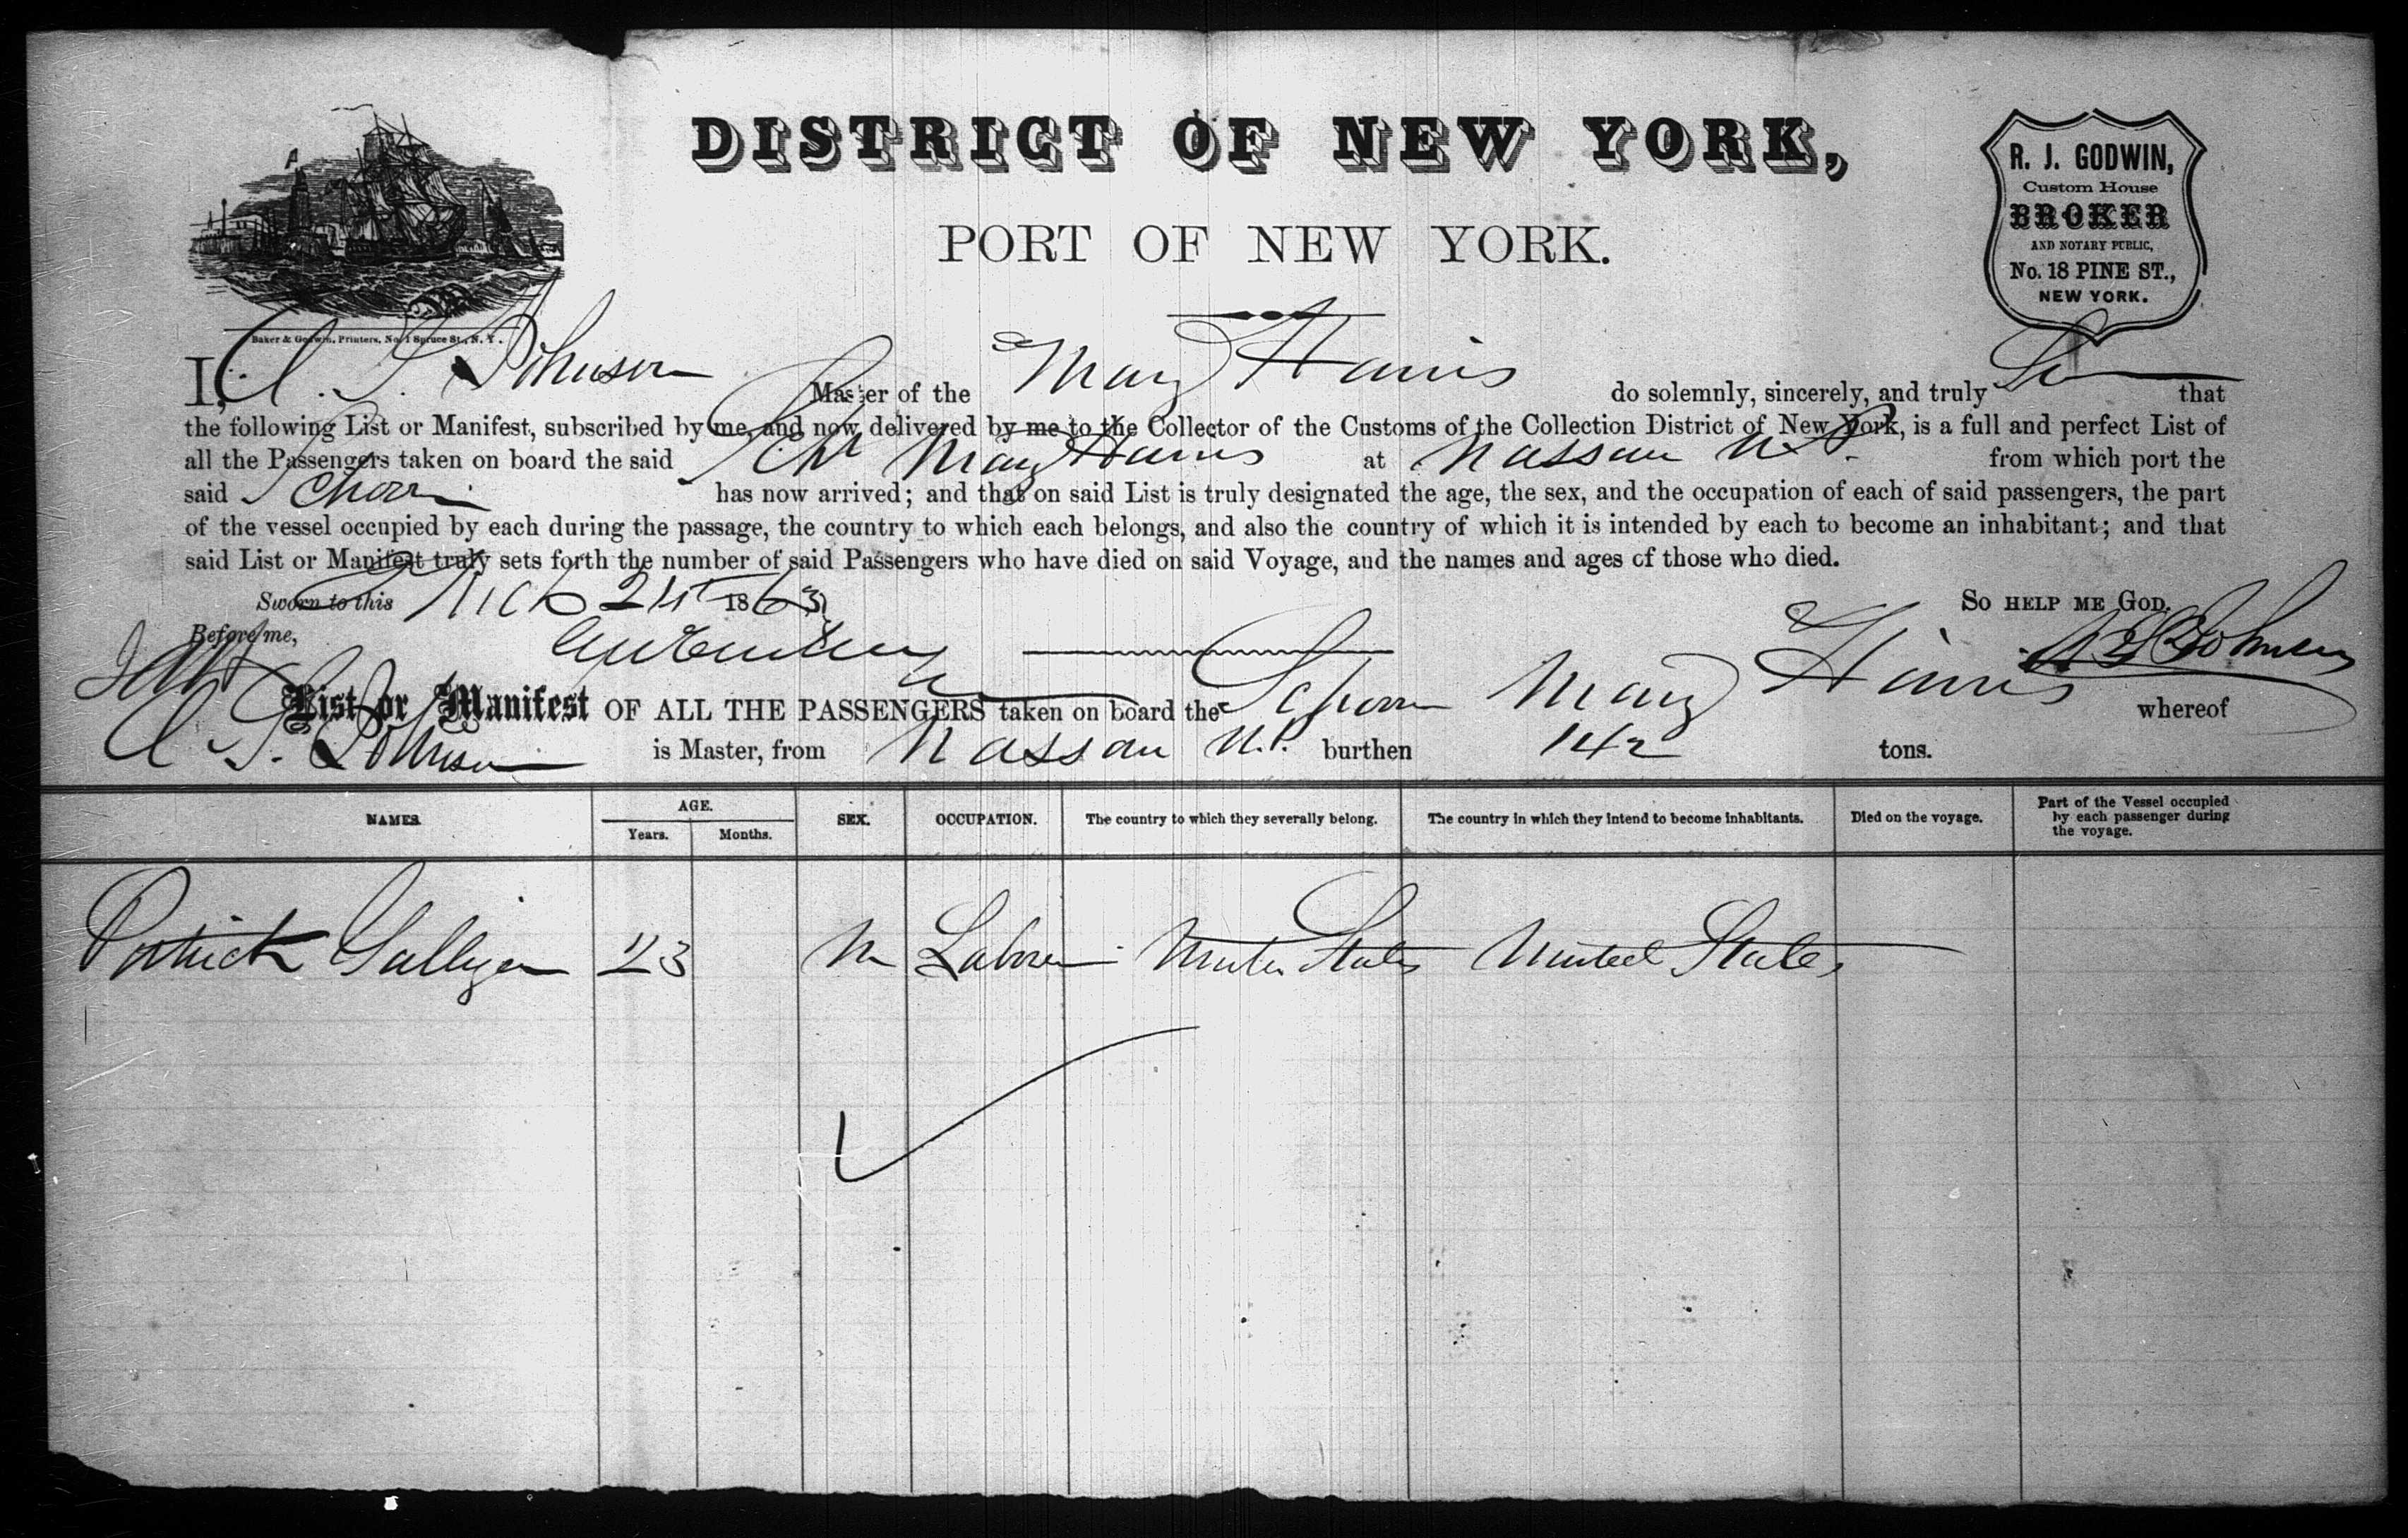 DISTRICT OF NEW YORK,
PORT OF NEW YORK.
R. J. GODWIN,
Custom House
BROKER
AND NOTARY PUBLIC,
No. 18 PINE ST.,
NEW YORK.
Baker & Godwin, Printers, No. 1 Spruce St., N. Y.
I, Johnson Master of the Mary Harris do solemnly, sincerely, and truly that
the following List or Manifest, subscribed by me, and now delivered by me to the Collector of the Customs of the Collection District of New York, is a full and perfect List of
all the Passengers taken on board the said Schr Mary Harris at Nassau N.P. from which port the
said Schoor has now arrived; and that on said List is truly designated the age, the sex, and the occupation of each of said passengers, the part
of the vessel occupied by each during the passage, the country to which each belongs, and also the country of which it is intended by each to become an inhabitant; and that
said List or Manifest truly sets forth the number of said Passengers who have died on said Voyage, and the names and ages of those who died.
Sworn to this Mch 1863 So HELP ME GOD.
Before me, Johnson
List or Manifest OF ALL THE PASSENGERS taken on board the Schoor Mary Harris whereof
Johnson is Master, from Nassau N.P. burthen 142 tons.
NAMES AGE. Years. Months. SEX. OCCUPATION. The country to which they severally belong. The country in which they intend to become inhabitants. Died on the voyage. Part of the Vessel occupied by each passenger during the voyage.
Patrick Galligan 23 M Laborer United States United States